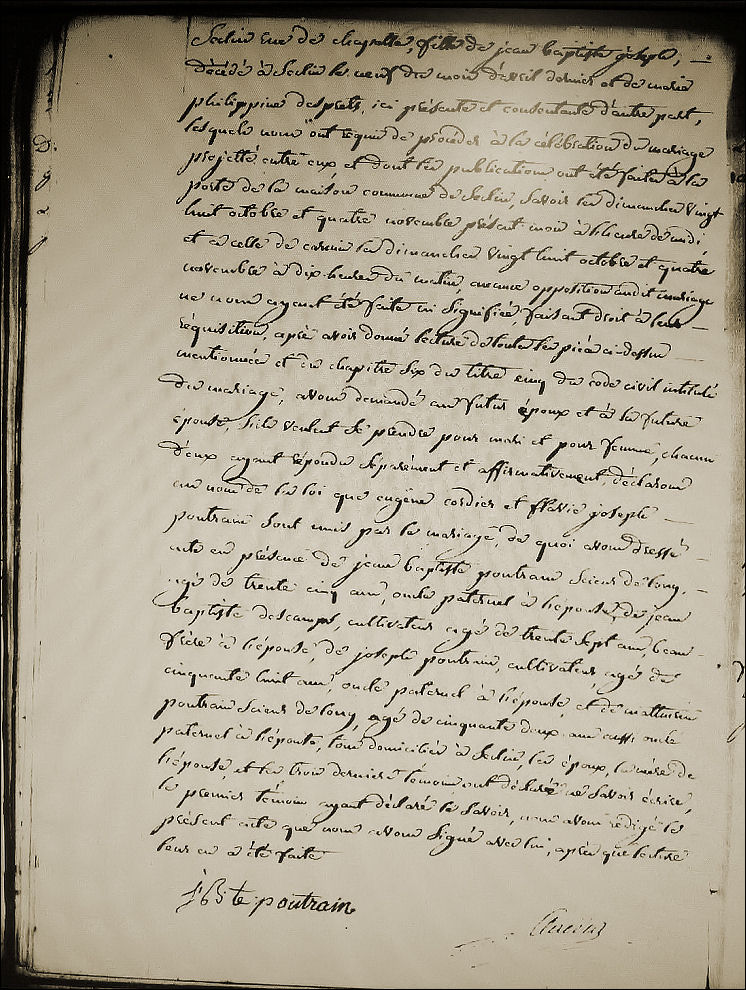 Seclin rue de chapelle, fille de jean baptiste joseph,
décédé à Seclin le neuf du mois d'avril dernier et de marie
philippine desprets, ici présente et consentante d'autre part,
lesquels nous ont requis de procéder à la célébration du mariage
projetté entre eux et dont les publications ont été faites à la
porte de la maison commune de Seclin, Savoir les dimanches vingt
huit octobre et quatre novembre présent mois à l'heure de midi,
et à celle de carvin les dimanches vingt huit octobre et quatre
novembre à dix heures du matin, aucune opposition audit mariage
ne nous ayant été faite ni signifiée, faisant droit à leur
réquisition, après avoir donné lecture de toutes les pièces ci-dessus
mentionnées et du chapitre six du titre cinq du code civil intitulé
du mariage, avons demandé au futur époux et à la future
épouse, s'ils veulent se prendre pour mari et pour femme, chacun
d'eux ayant répondu séparément et affirmativement, déclarons
au nom de la loi que eugène cordier et flavie joseph
poutrain sont unis par le mariage, de quoi avons dressé
acte en présence de jean baptiste poutrain scieur de long,
agé de trente cinq ans, oncle paternel à l'épouse, de jean
baptiste descamps, cultivateur agé de trente sept ans, beau
frère à l'épouse, de joseph poutrain, cultivateur, agé de
cinquante huit ans, oncle paternel à l'épouse, et de mathurin
poutrain scieur de long, agé de cinquante deux ans aussi oncle
paternel à l'épouse, tous domiciliés à Seclin, les époux, la mère de
l'épouse, et les trois derniers témoins ont déclaré ne savoir écrire,
le premier témoin ayant déclaré le savoir, nous avons rédigé le
présent acte que nous avons signé avec lui, après que lecture
leur en a été faite
J Bte poutrain